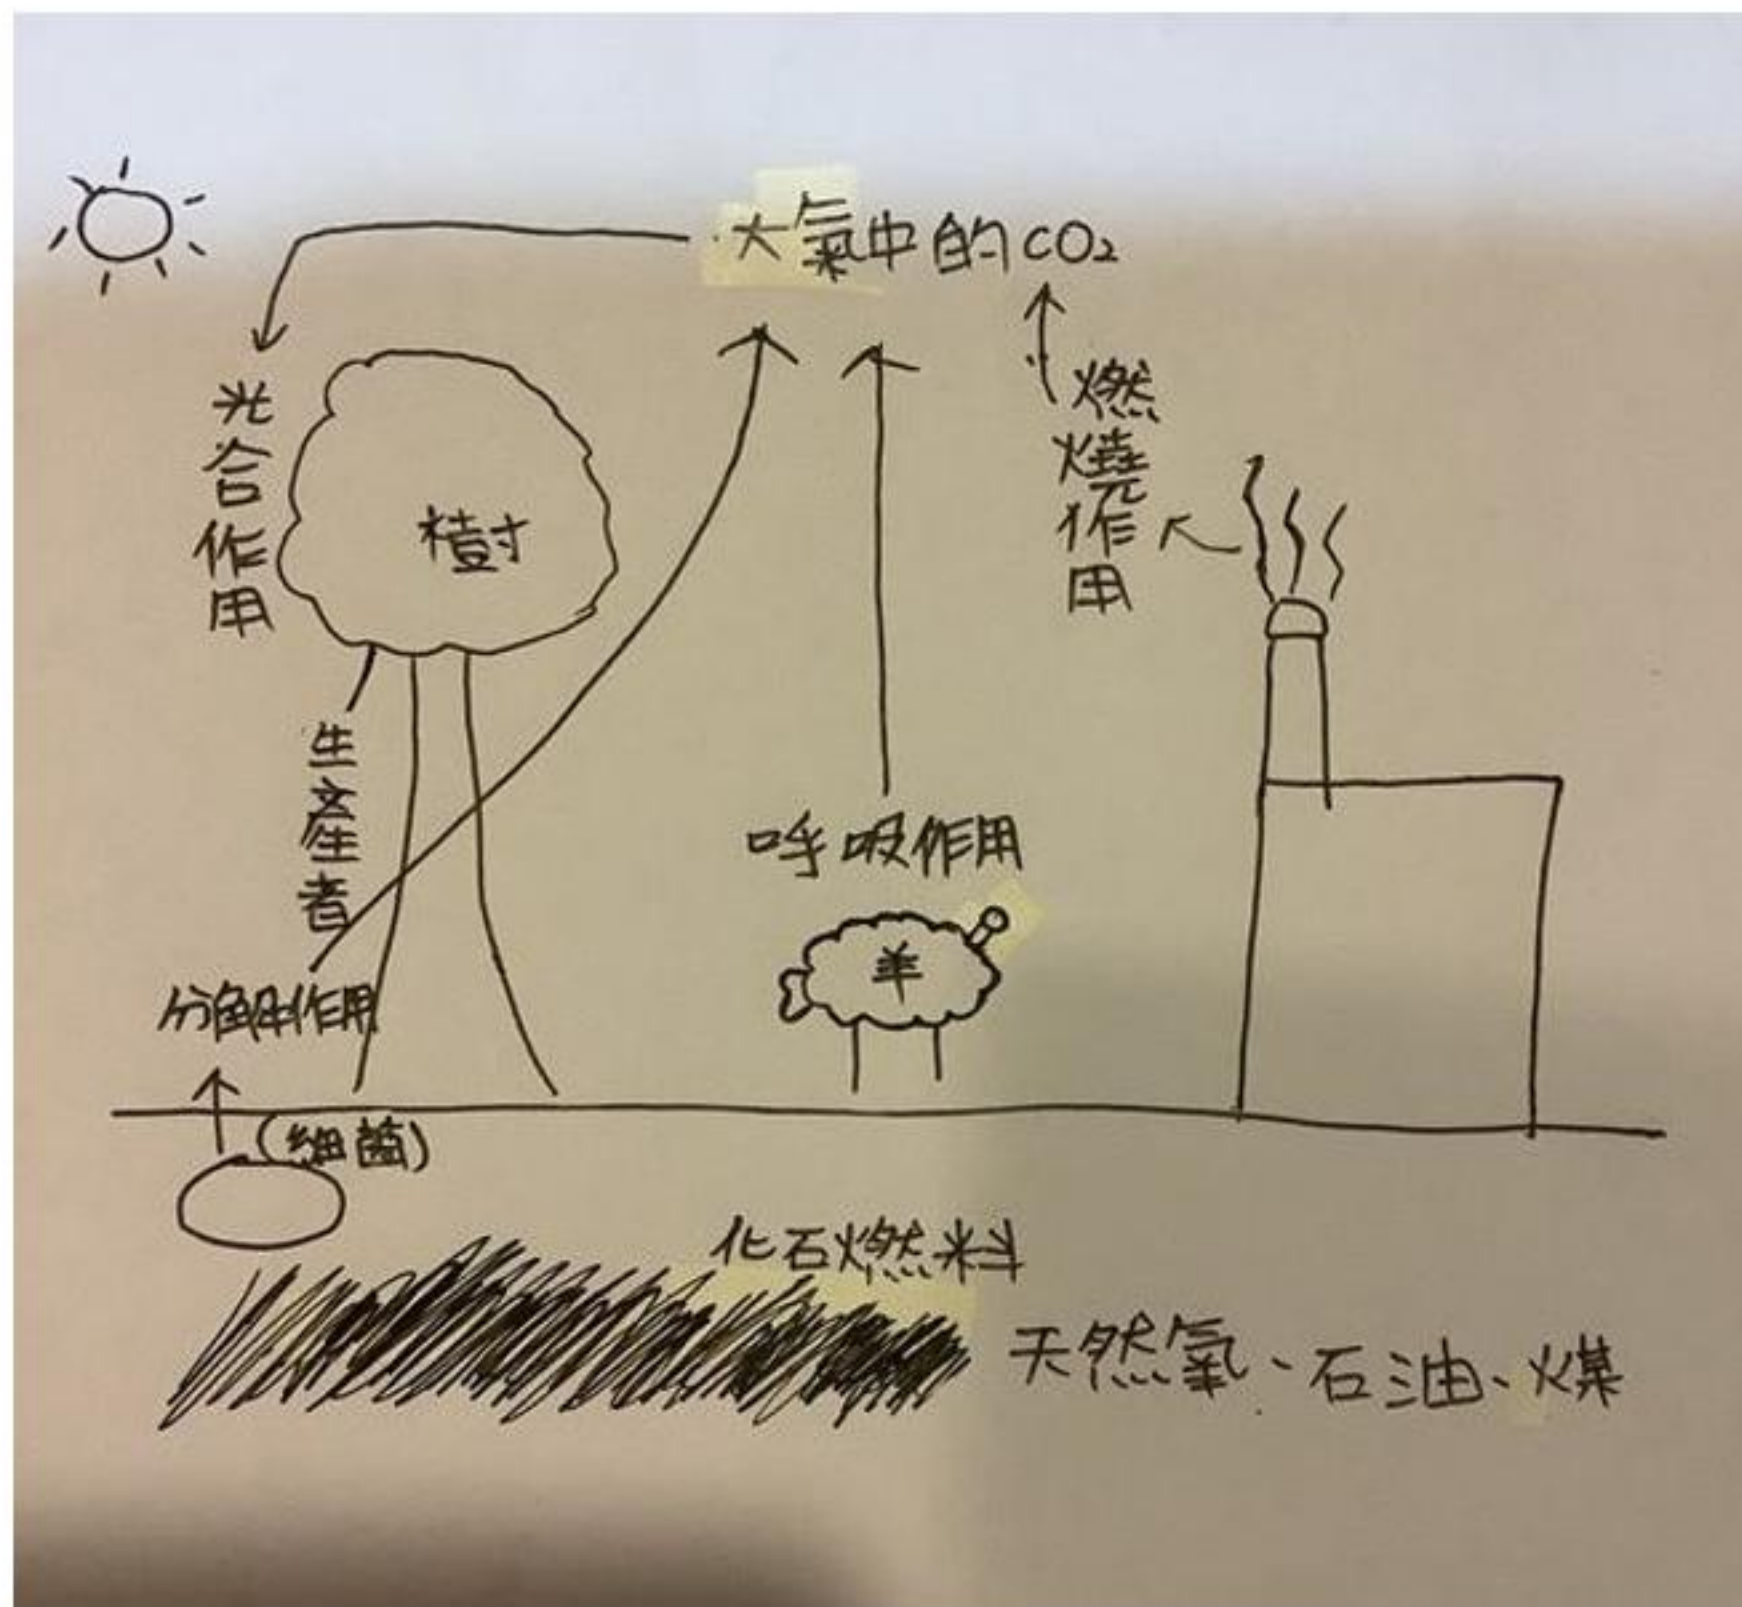 大氣中的CO₂
光合作用
燃燒作用
樹
生產者
呼吸作用
羊
分解作用
(細菌)
化石燃料
天然氣、石油、煤